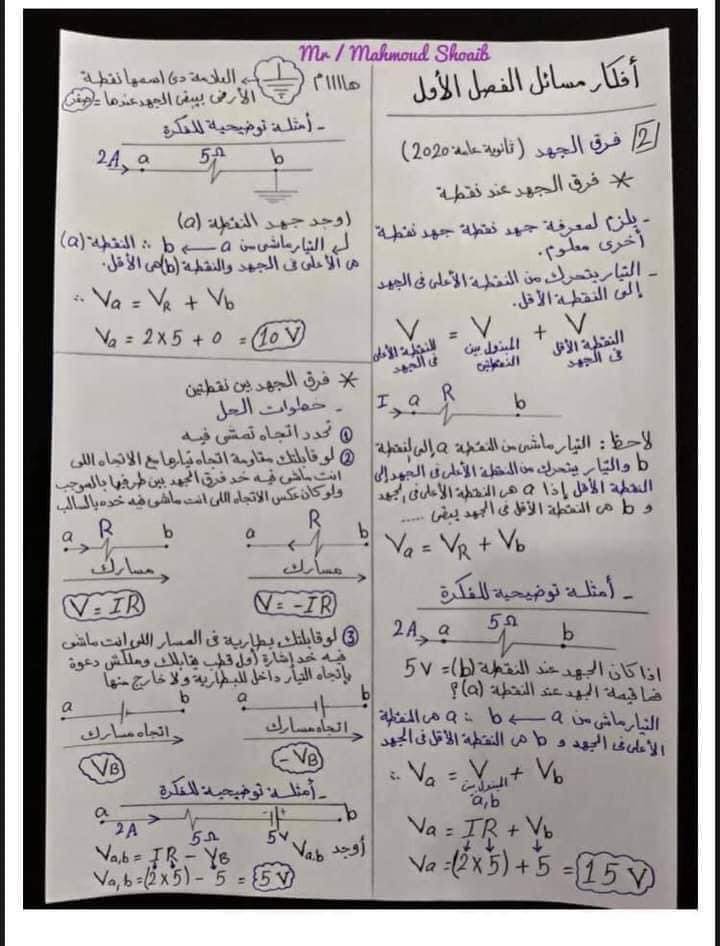 Mr / Mahmoud Shoaib
أفكار مسائل الفصل الأول
2 فرق الجهد (ثانوية عامة 2020)
* فرق الجهد عند نقطة
- يلزم لمعرفة جهد نقطة جهد نقطة
أخرى معلوم.
- التيار يتحرك من النقطة الأعلى فى الجهد
إلى النقطة الأقل.
V = V + V
النقطة الأعلى فى الجهد المبذول بين النقطتين النقطة الأقل فى الجهد
I a R b
لاحظ: التيار ماشى من النقطة a إلى النقطة
b والتيار يتحرك من النقطة الأعلى فى الجهد إلى
النقطة الأقل إذا a هى النقطة الأعلى فى الجهد
و b هى النقطة الأقل فى الجهد يبقى .....
Va = VR + Vb
- أمثلة توضيحية للفكرة
2A a 5Ω b
اذا كان الجهد عند النقطة (b) = 5V
فما قيمة الجهد عند النقطة (a)؟
التيار ماشى من a ← b ∴ a هى النقطة
الأعلى فى الجهد و b هى النقطة الأقل فى الجهد
∴ Va = V المبذول بين a,b + Vb
Va = IR + Vb
Va = (2×5) + 5 = 15 V
هاااام العلامة دى اسمها نقطة
الأرضى يبقى الجهد عندها = صفر
- أمثلة توضيحية للفكرة
2A a 5Ω b
اوجد جهد النقطة (a)
التيار ماشى من a ← b ∴ النقطة (a)
هى الأعلى فى الجهد والنقطة (b) هى الأقل.
∴ Va = VR + Vb
Va = 2×5 + 0 = 10 V
* فرق الجهد بين نقطتين
- خطوات الحل
1 تحدد اتجاه تمشى فيه
2 لو قابلتك مقاومة اتجاه تيارها مع الاتجاه اللى
انت ماشى فيه خد فرق الجهد بين طرفيها بالموجب
ولو كان عكس الاتجاه اللى انت ماشى فيه خده بالسالب
a R b a R b
مسارك مسارك
V = IR V = -IR
3 لو قابلتك بطارية فى المسار اللى انت ماشى
فيه خد إشارة أول قطب يقابلك وملكش دعوة
بإتجاه التيار داخل للبطارية ولا خارج منها
a b a b
اتجاه مسارك اتجاه مسارك
VB -VB
- أمثلة توضيحية للفكرة
a 2A 5Ω 5V b
أوجد Va,b
Va,b = IR - VB
Va,b = (2×5) - 5 = 5 V